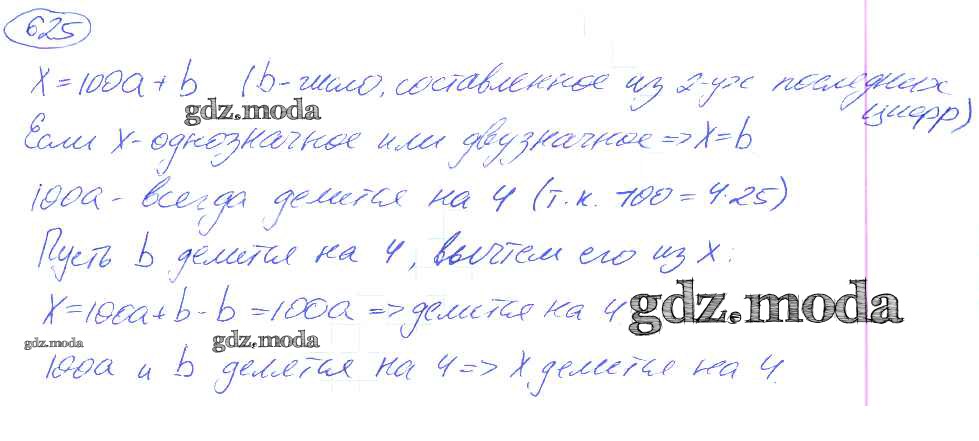 625
x = 100a + b (b - число, составленное из 2-ух последних цифр)
gdz.moda
Если x - однозначное или двузначное => x = b
100a - всегда делится на 4 (т.к. 100 = 4·25)
Пусть b делится на 4, вычтем его из x:
x = 100a + b - b = 100a => делится на 4
gdz.moda
gdz.moda
gdz.moda
100a и b делятся на 4 => x делится на 4.